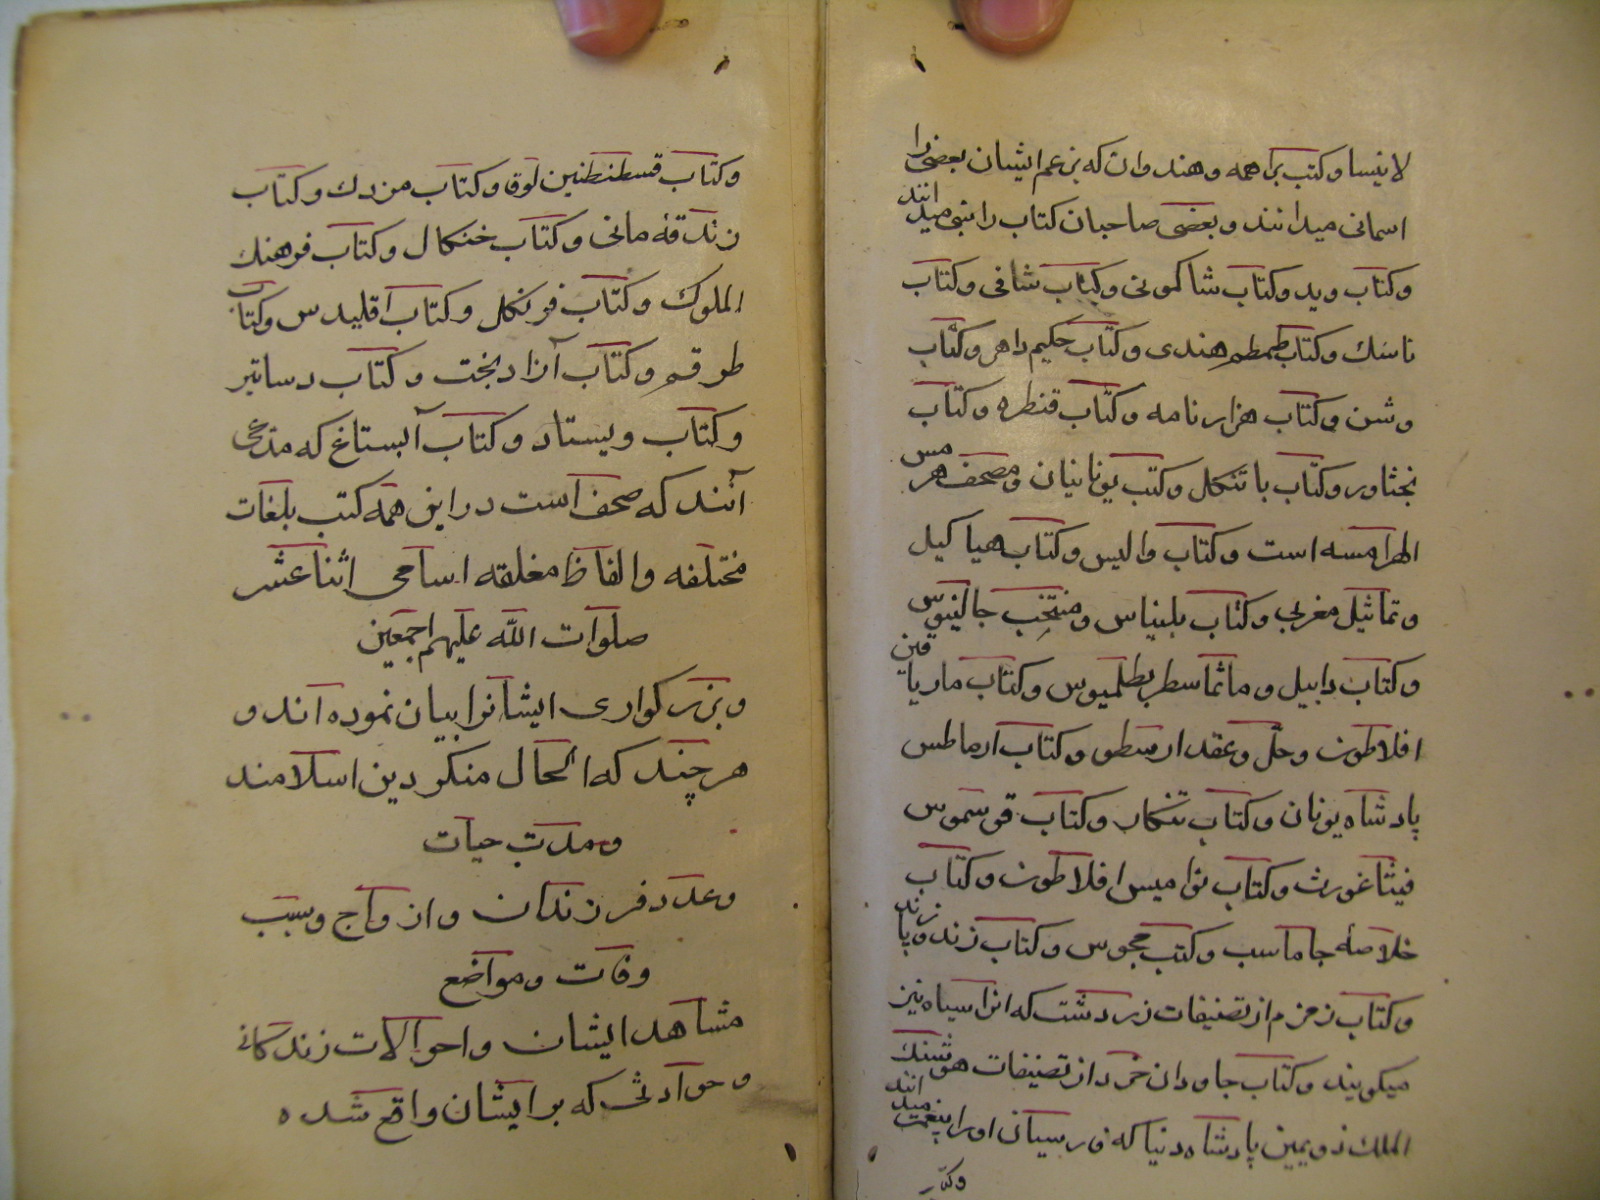 لانیسا و کتب براهمه و هندوان که بزعم ایشان بعضی را
اسمانی میدانند و بعضی صاحبان کتاب را نبی میدانند
و کتاب وید و کتاب شاکمونی و کتاب شافی و کتاب
ناسک و کتاب طمطم هندی و کتاب حکیم داهر و کتاب
وشن و کتاب هزار نامه و کتاب قنطره و کتاب
و کتاب باتنکل و کتب یونانیان و مصحف هرمس
الهرامسه است و کتاب والیس و کتاب هیاکیل
و تماثیل مغربی و کتاب بلیناس و منتخب جالینوس
و کتاب دابیل و ماثماسطر بطلمیوس و کتاب ماریاقین
افلاطون و حل و عقد ارسطو و کتاب ارماطس
پادشاه یونان و کتاب تنکاب و کتاب قوسموس
فیثاغورث و کتاب نوامیس افلاطون و کتاب
خلاصه جاماسب و کتب مجوس و کتاب زند و پازند
و کتاب زمزم از تصنیفات زردشت که انرا سیاه نیز
میکویند و کتاب جاودان خرد از تصنیفات هوشنک
الملک ذویمین پادشاه دنیا که فارسیان اورا پیغمبر میدانند
و کتاب قسطنطنین لوقا و کتاب مزدک و کتاب
زندقه مانی و کتاب خنکال و کتاب فرهنک
الملوک و کتاب فرنکل و کتاب اقلیدس و کتاب
طوقم و کتاب آزادبخت و کتاب دساتیر
و کتاب ویستاد و کتاب آبستاغ که مدعی
آنند که صحف است در این همه کتب بلغات
مختلفه و الفاظ مغلقه اسامی اثنا عشر
صلوات الله علیهم اجمعین
و بزرکواری ایشانرا بیان نموده اند و
هر چند که الحال منکر دین اسلامند
و مدت حیات
و عدد فرزندان و ازواج و سبب
وفات و مواضع
مشاهد ایشان و احوالات زندکانی
و حوادثی که بر ایشان واقع شده